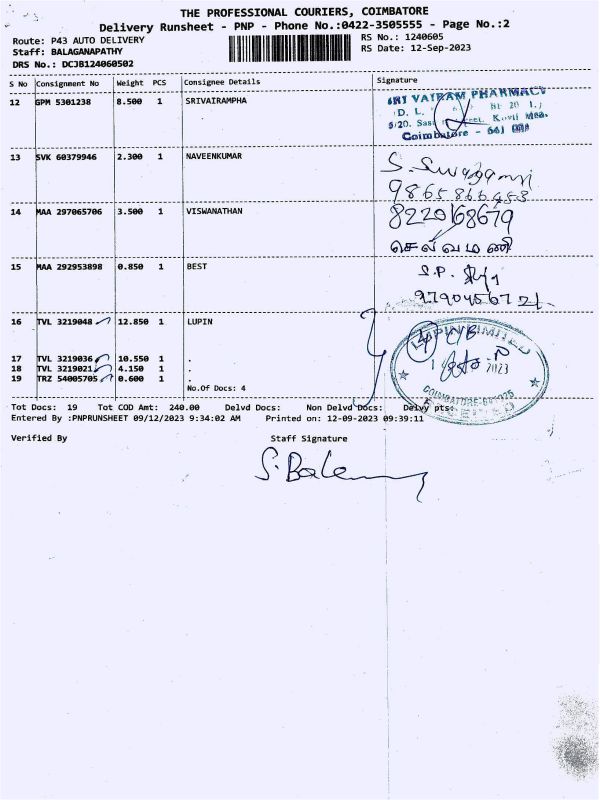 THE PROFESSIONAL COURIERS, COIMBATORE
Delivery Runsheet - PNP - Phone No.:0422-3505555 - Page No.:2
Route: P43 AUTO DELIVERY RS No.: 1240605
Staff: BALAGANAPATHY RS Date: 12-Sep-2023
DRS No.: DCJB124060502
S No Consignment No Weight PCS Consignee Details Signature
12 GPM 5301238 8.500 1 SRIVAIRAMPHA
SRI VAIRAM PHARMACY
D. L.
Coimbatore - 641
13 SVK 60379946 2.300 1 NAVEENKUMAR
14 MAA 297065706 3.500 1 VISWANATHAN 8220168679
செல்வமணி
15 MAA 292953898 0.850 1 BEST
S.P.
16 TVL 3219048 12.850 1 LUPIN
LUPIN LIMITED
17 TVL 3219036 10.550 1 .
18 TVL 3219021 4.150 1 .
19 TRZ 54005705 0.600 1 .
2023
COIMBATORE
No.Of Docs: 4
Tot Docs: 19 Tot COD Amt: 240.00 Delvd Docs: Non Delvd Docs: Delvy pts:
Entered By :PNPRUNSHEET 09/12/2023 9:34:02 AM Printed on: 12-09-2023 09:39:11
Verified By Staff Signature